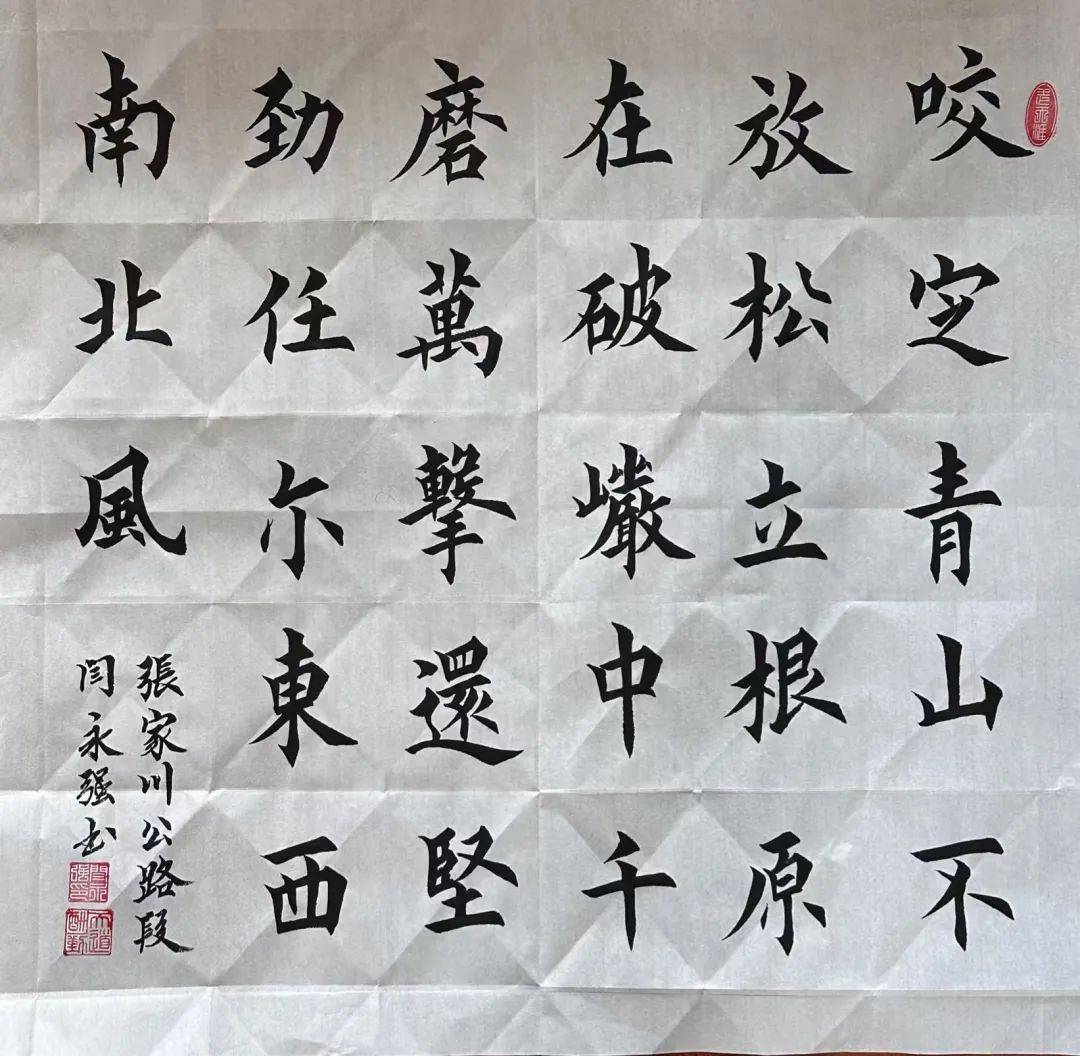 咬定青山不
放松立根原
在破巖中千
磨萬擊還堅
劲任尓東西
南北風
張家川公路段
闫永强书